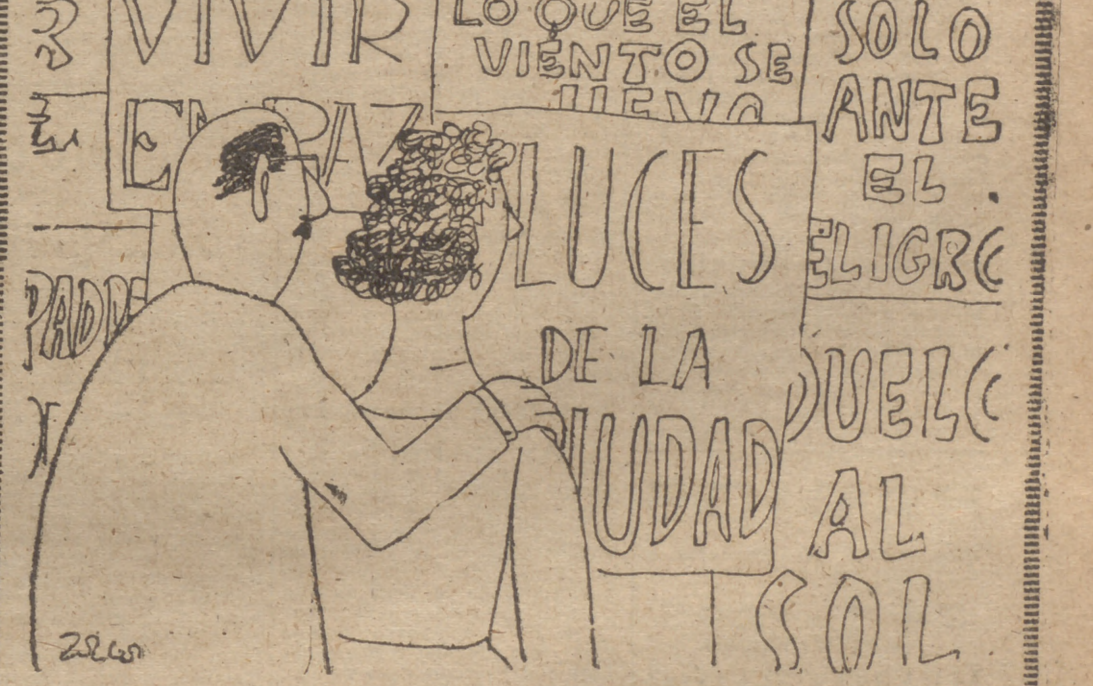 VIVIR
EN PAZ
LO QUE EL
VIENTO SE
LLEVO
SOLO
ANTE
EL
PELIGRO
LUCES
DE LA
CIUDAD
PADRE
Y
DUELO
AL
SOL